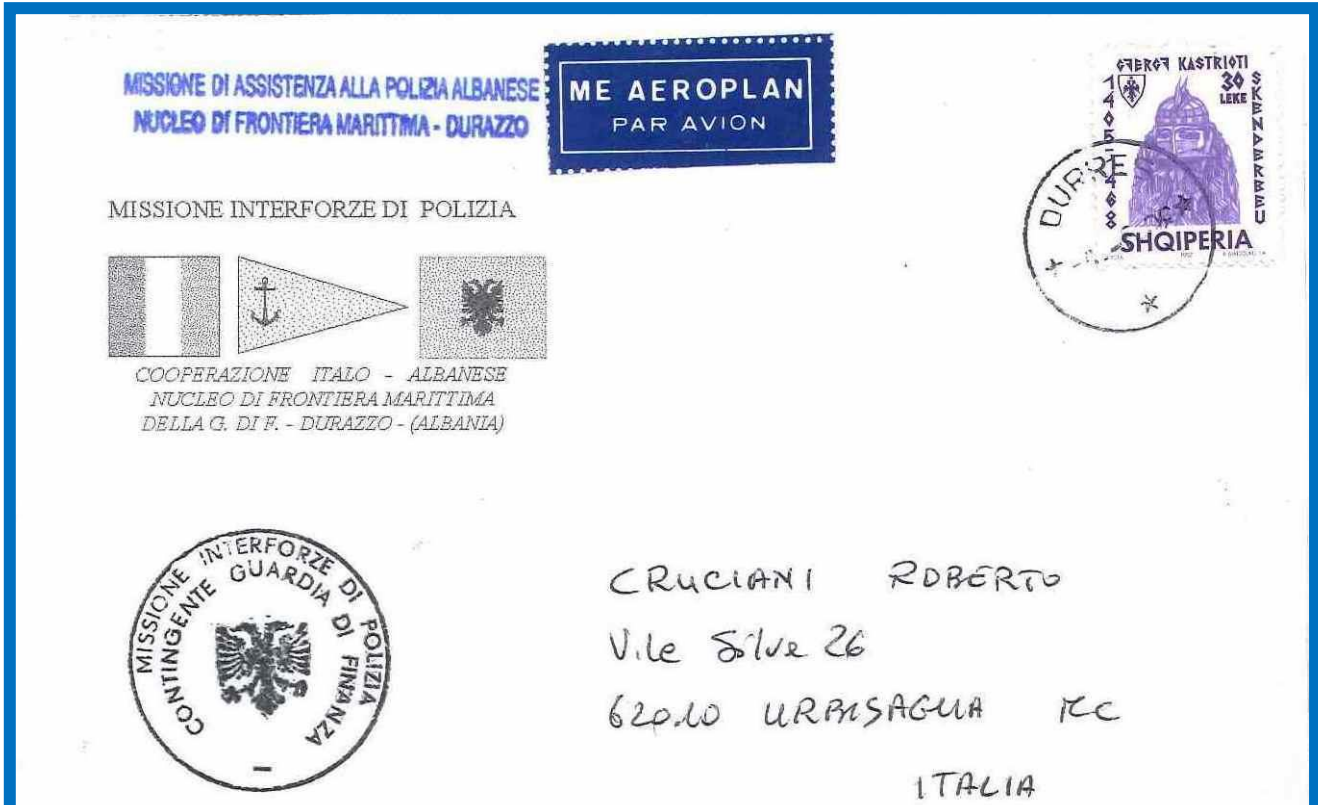 MISSIONE DI ASSISTENZA ALLA POLIZIA ALBANESE
NUCLEO DI FRONTIERA MARITTIMA - DURAZZO
ME AEROPLAN
PAR AVION
GJERGJ KASTRIOTI
30
LEKE
1405-1468
SKENDERBEU
SHQIPERIA
1992
DURRES
MISSIONE INTERFORZE DI POLIZIA
COOPERAZIONE ITALO - ALBANESE
NUCLEO DI FRONTIERA MARITTIMA
DELLA G. DI F. - DURAZZO - (ALBANIA)
MISSIONE INTERFORZE DI POLIZIA
CONTINGENTE GUARDIA DI FINANZA
CRUCIANI ROBERTO
V.le Silve 26
62010 URBISAGLIA MC
ITALIA